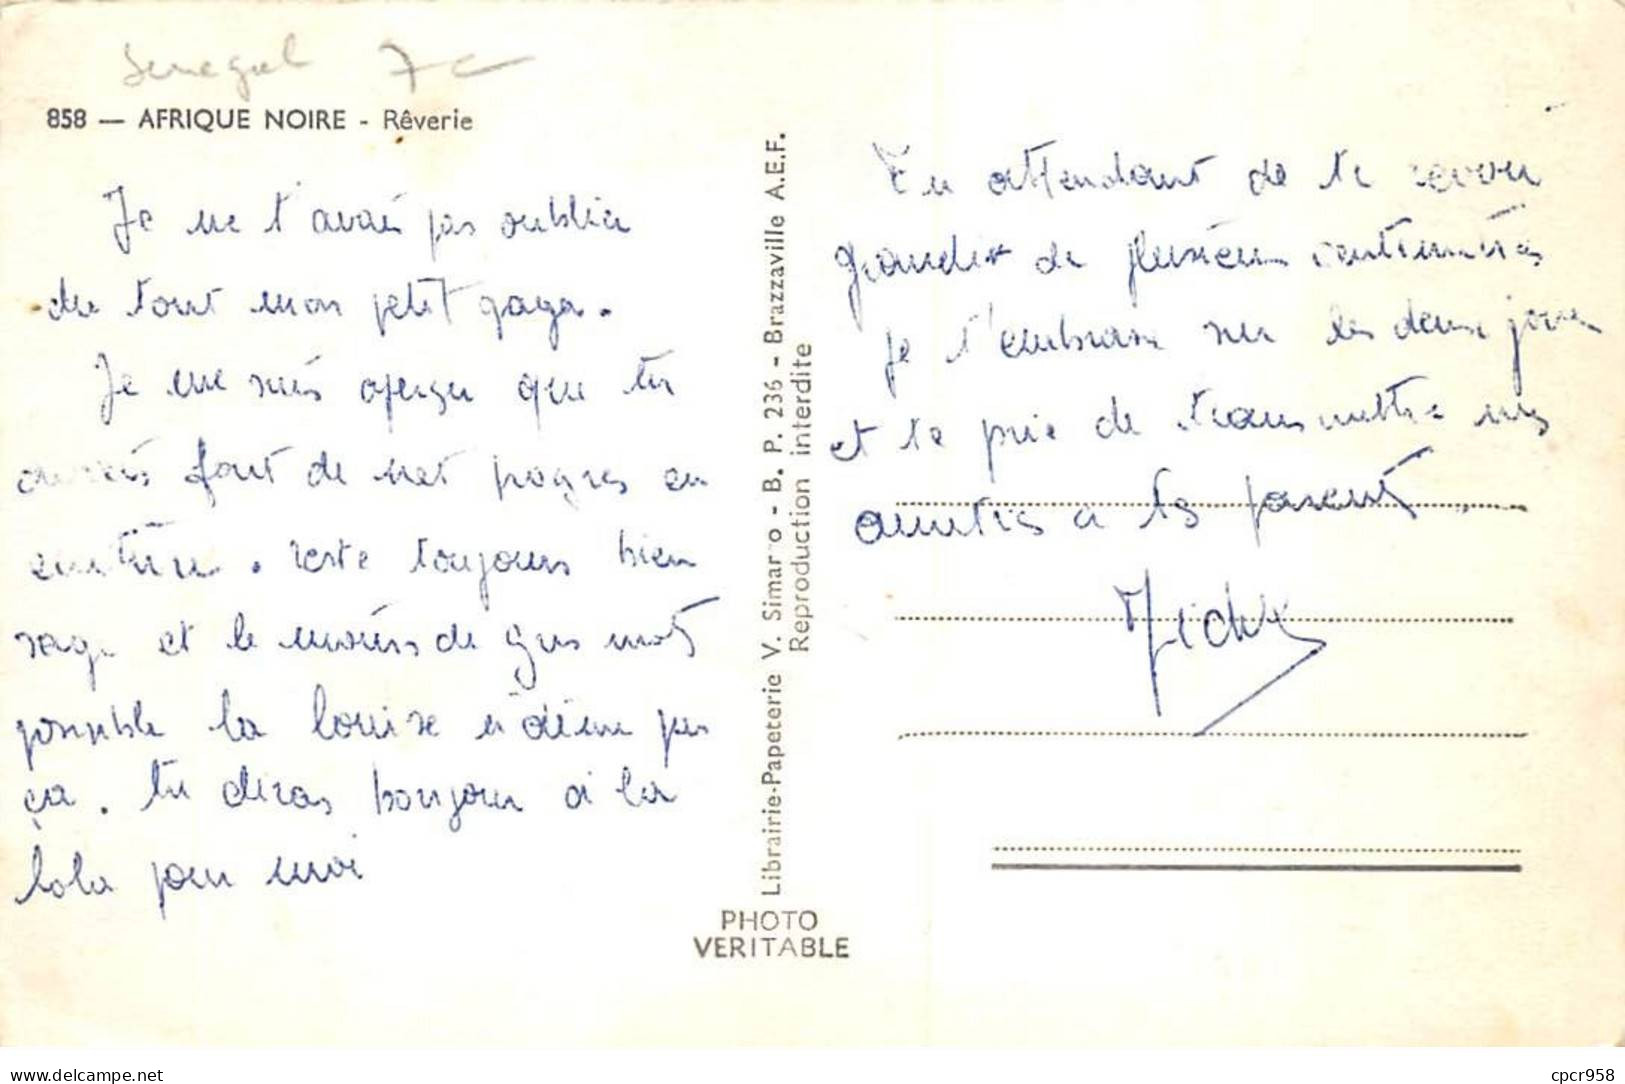 Senegal 7c
858 — AFRIQUE NOIRE - Rêverie
Je ne t'avais pas oublier
du tout mon petit gaga.
Je me suis aperçu que tu
avais fait de net progres en
. reste toujours bien
sage et le moins de gros mots
possible la louise n'aime pas
ça. tu diras bonjour à la
lola pour moi
Librairie-Papeterie V. Simarro - B. P. 236 - Brazzaville A.E.F.
Reproduction interdite
PHOTO
VERITABLE
En attendant de te revoir
grandir de plusieurs centimètres
je t'embrasse sur les deux joues
et te prie de transmettre mes
amitiés a tes parents
delcampe.net
cpcr958